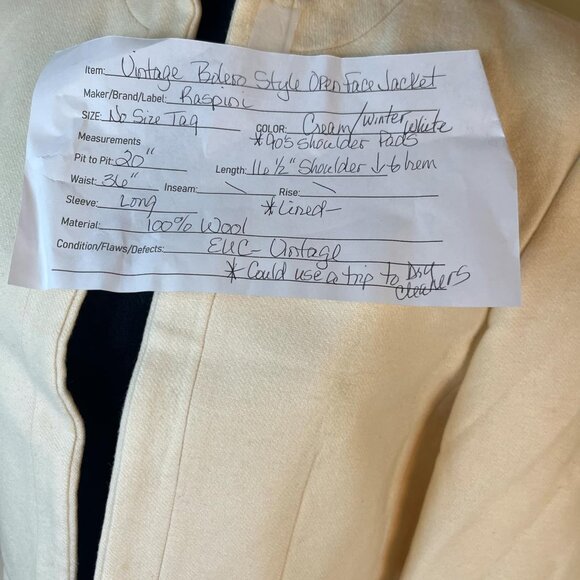 Item: Vintage Bolero Style Open Face Jacket
Maker/Brand/Label: Raspini
SIZE: No Size Tag COLOR: Cream/Winter White
Measurements *90s Shoulder Pads
Pit to Pit: 20" Length: 16 1/2" Shoulder ↓ to hem
Waist: 36" Inseam: \ Rise: \
Sleeve: Long *Lined
Material: 100% Wool
Condition/Flaws/Defects: EUC- Vintage
*Could use a trip to Dry Cleaners